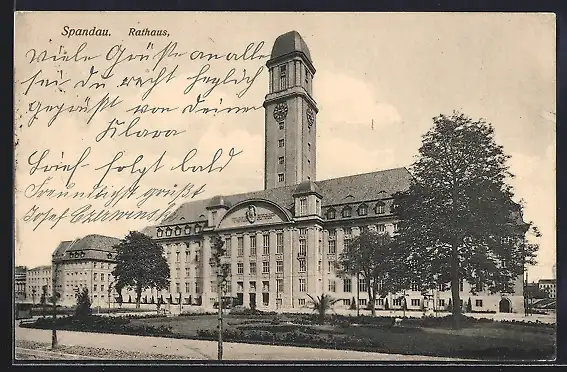 Spandau. Rathaus,
Viele Grüße an alle
sei du recht herzlich
gegrüßt von Deiner
Klara
Brief folgt bald
Freundlichst grüßt
Josef